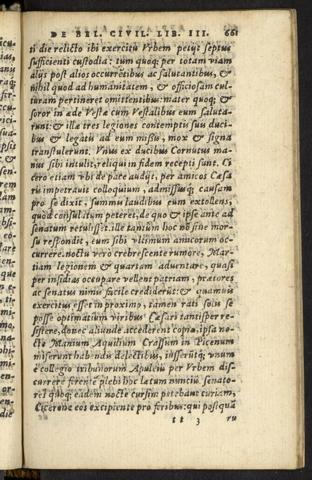 DE BEL. CIVIL. LIB. III. 661
ti die relicto ibi exercitu Vrbem petijt septus
sufficienti custodia: tum quoq; per totam viam
alijs post alios occurrētibus ac salutantibus, &
nihil quod ad humanitatem, & officiosam cul
turam pertineret omittentibus: mater quoq; &
soror in æde Vestæ cum Vestalibus eum saluta
runt: & illæ tres legiones contemptis suis duci
bus & legatis ad eum missis, mox & signa
transtulerunt. Vnus ex ducibus Cornutus ma-
nus sibi intulit, reliqui in fidem recepti sunt. Ci
cero etiam vbi de pace audijt, per amicos Cæsa
ris impetrauit colloquium, admissusq; causam
pro se dixit, summis laudibus eum extollens,
quòd consulatum peteret, de quo & ipse ante ad
senatum retulisset. ille tantùm hoc nō sine mor-
su respondit, eum sibi vltimum amicorum oc-
currere. noctu verò crebrescente rumore, Mar-
tiam legionem & quartam aduentare, quasi
per insidias occupare vellent patriam, prætores
ac senatus nimis facilè crediderūt: & quamuis
exercitus esset in proximo, tamen rati solis se
posse optimatium viribus Cæsari tantisper re-
sistere, donec aliunde accederent copiæ, ipsa no-
cte Manium Aquilium Crassum in Picenum
miserunt habendis delectibus, iusserūtq; vnum
è collegio tribunorum Apuleiū per Vrbem dis-
currere ferentē plebi hoc lætum nunciū senato-
res quoq; eadem nocte cursim petebant curiam,
Cicerone eos excipiente pro foribus: qui posiquā
tt 3 ru